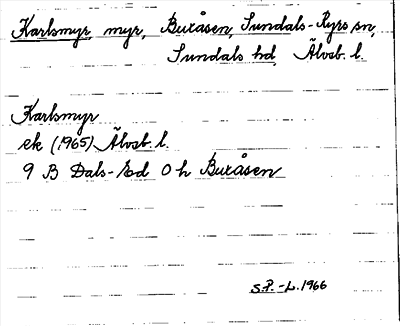 Karlsmyr myr, Buråsen, Sundals-Ryrs sn,
Sundals hd, Älvsb. l.
Karlsmyr
ek (1965) Älvsb. l.
9 B Dals-Ed O h Buråsen
S.P. -L. 1966